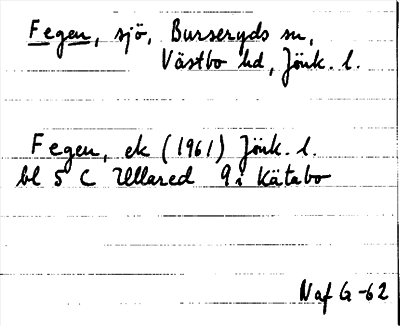 Fegen, sjö, Burseryds sn,
Västbo hd, Jönk. l.
Fegen, ek (1961) Jönk. l.
bl 5 C Ullared 9i Kätabo
Naf G-62